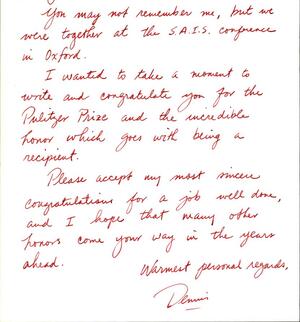 You may not remember me, but we
were together at the S.A.I.S. conference
in Oxford.
I wanted to take a moment to
write and congratulate you for the
Pulitzer Prize and the incredible
honor which goes with being a
recipient.
Please accept my most sincere
congratulations for a job well done,
and I hope that many other
honors come your way in the years
ahead.
Warmest personal regards,
Dennis